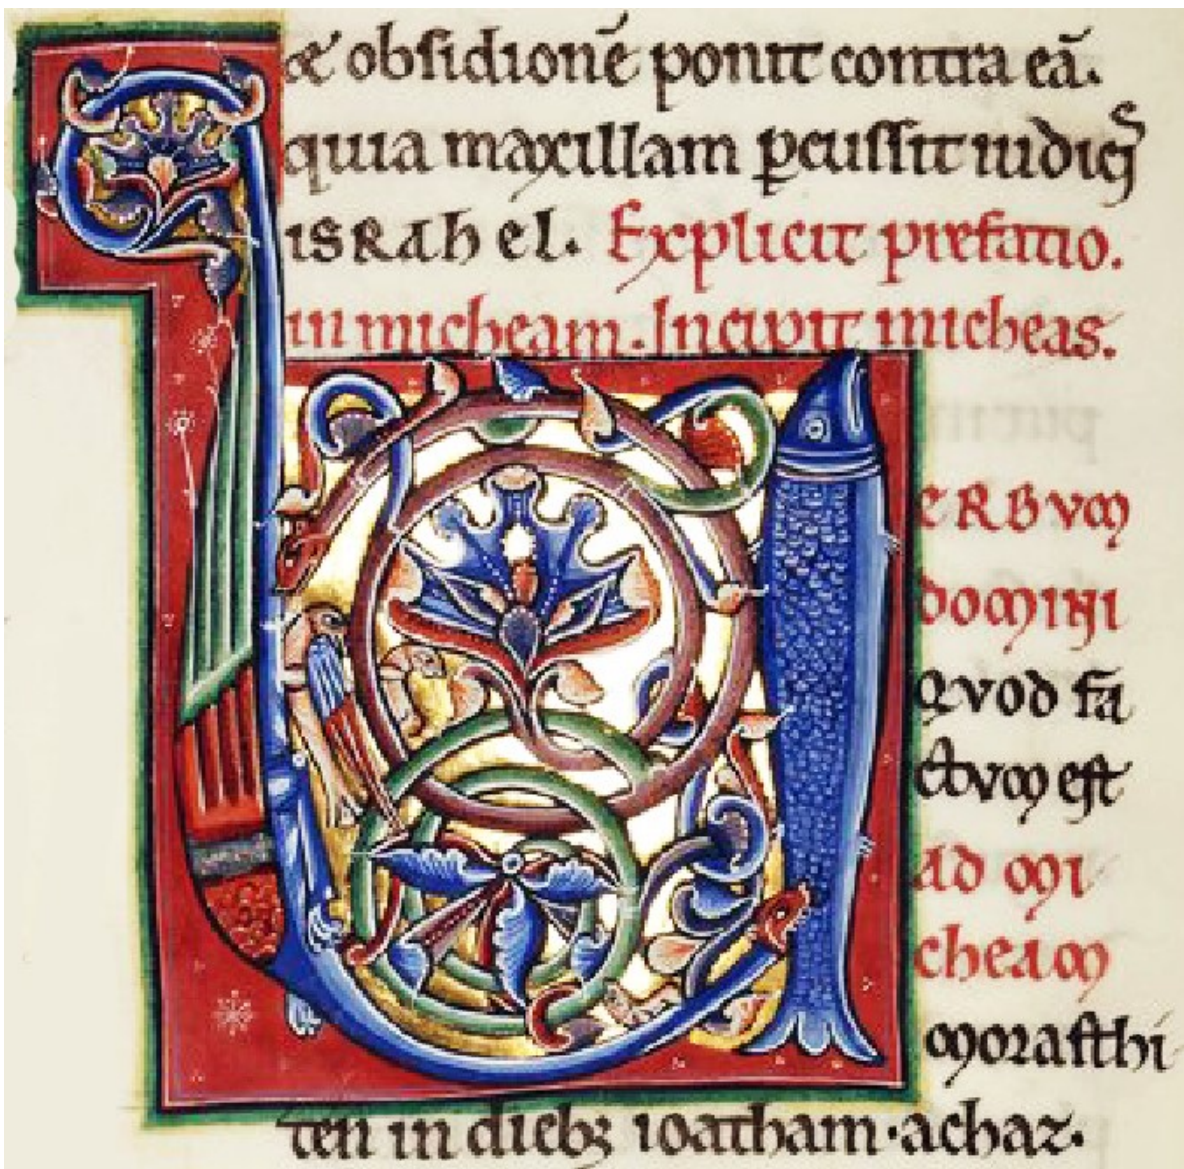 & obsidionē ponit contra eā.
quia maxillam ꝑcussit iudicꝭ
isRahel. Explicit prefatio.
in micheam. Incipit micheas.
V
ERBVM
DOMINI
QVOD fa
ctVM est
AD MI
cheAM
Morasthi
ten in diebꝫ ioatham·achaz·